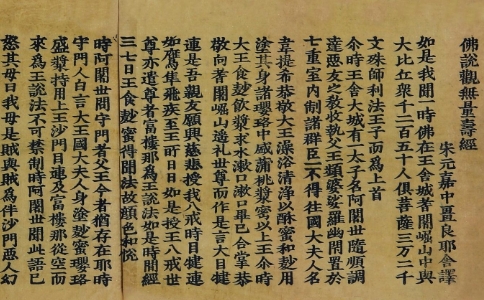 佛說觀無量壽經
宋元嘉中畺良耶舍譯
如是我聞一時佛在王舍城耆闍崛山中與
大比丘衆千二百五十人俱菩薩三万二千
文殊師利法王子而為上首
尒時王舍大城有一太子名阿闍世隨順調
達惡友之教收執父王頻婆娑羅幽閉置於
七重室內制諸群臣一不得往國大夫人名
韋提希恭敬大王澡浴清淨以酥蜜和麨用
塗其身諸瓔珞中盛蒲桃漿密以上王尒時
大王食麨飲漿求水漱口漱口畢已合掌恭
敬向耆闍崛山遥礼世尊而作是言大目犍
連是吾親友願興慈悲授我八戒時目犍連
如鷹隼飛疾至王所日日如是授王八戒世
尊亦遣尊者富樓那為王說法如是時閒經
三七日王食麨蜜得聞法故顏色和悅
時阿闍世問守門者父王今者猶存在耶時
守門人白言大王國大夫人身塗麨蜜瓔珞
盛漿持用上王沙門目連及富樓那從空而
來為王說法不可禁制時阿闍世聞此語已
怒其母曰我母是賊與賊為伴沙門惡人幻